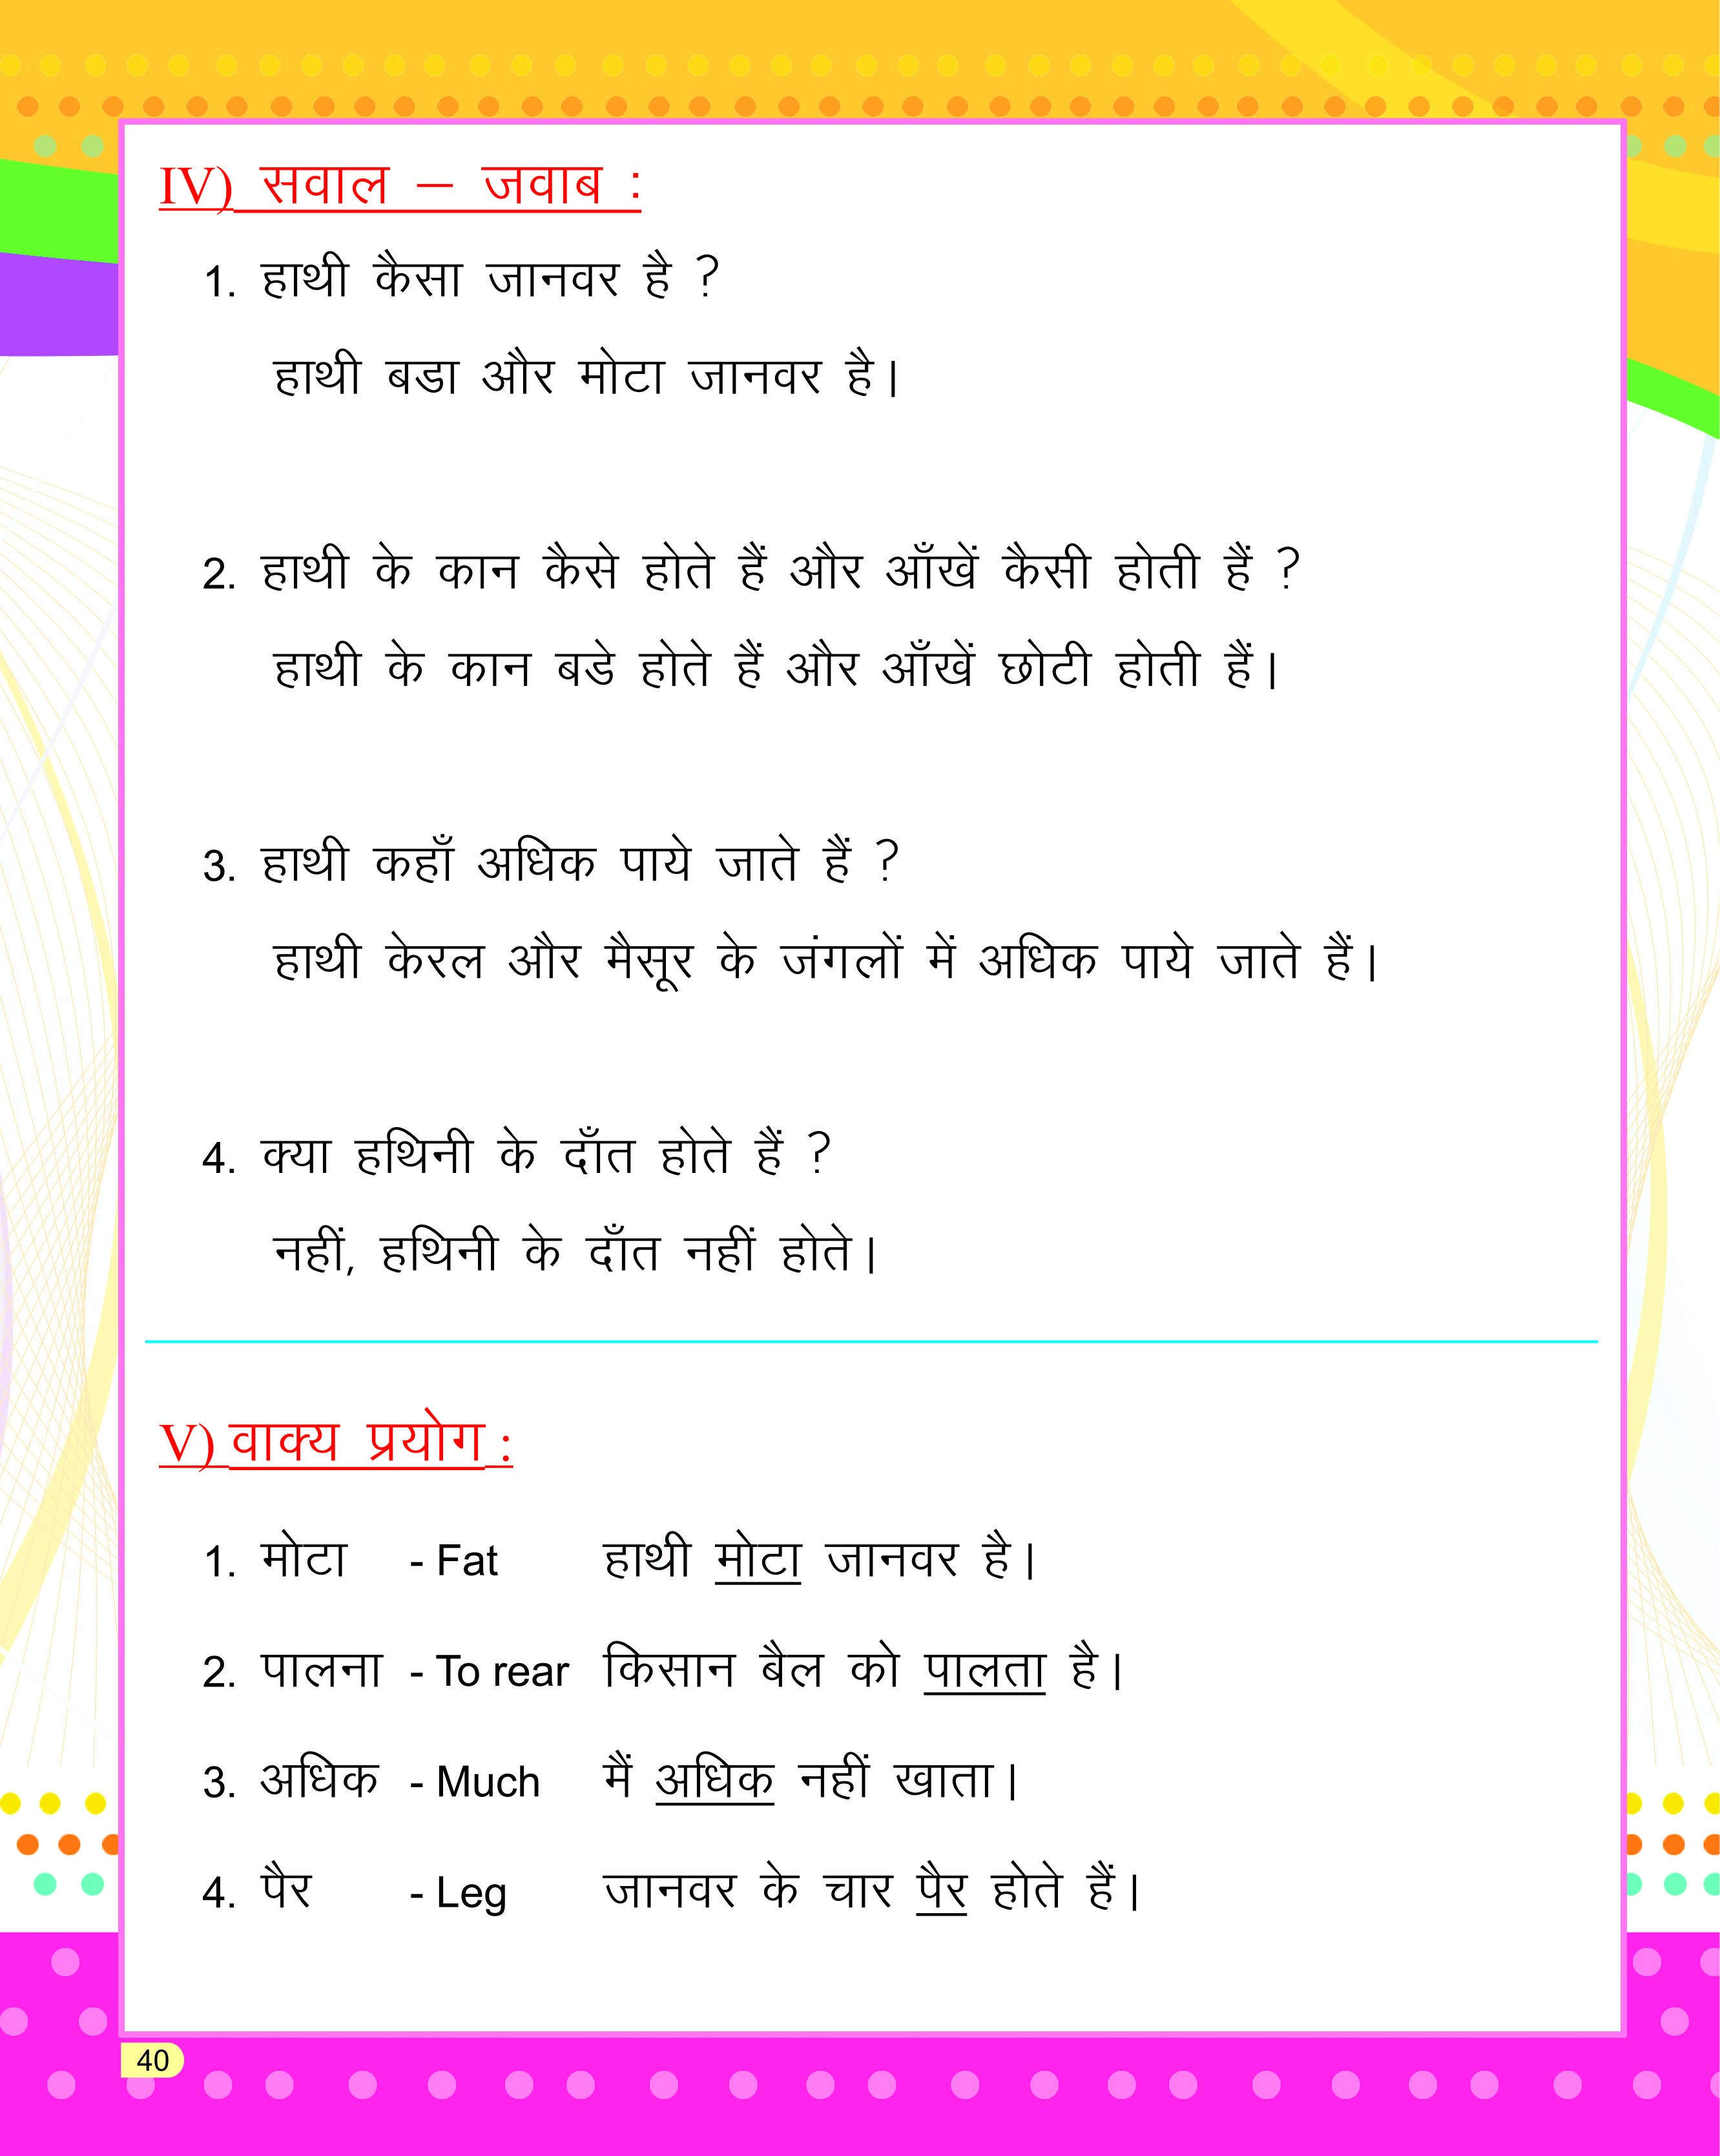 IV) सवाल – जवाब :
1. हाथी कैसा जानवर है ?
हाथी बडा और मोटा जानवर है।
2. हाथी के कान कैसे होते हैं और आँखें कैसी होती हैं ?
हाथी के कान बडे होते हैं और आँखें छोटी होती हैं।
3. हाथी कहाँ अधिक पाये जाते हैं ?
हाथी केरल और मैसूर के जंगलों में अधिक पाये जाते हैं।
4. क्या हथिनी के दाँत होते हैं ?
नहीं, हथिनी के दाँत नहीं होते।
V) वाक्य प्रयोग :
1. मोटा - Fat हाथी मोटा जानवर है।
2. पालना - To rear किसान बैल को पालता है।
3. अधिक - Much मैं अधिक नहीं खाता।
4. पैर - Leg जानवर के चार पैर होते हैं।
40